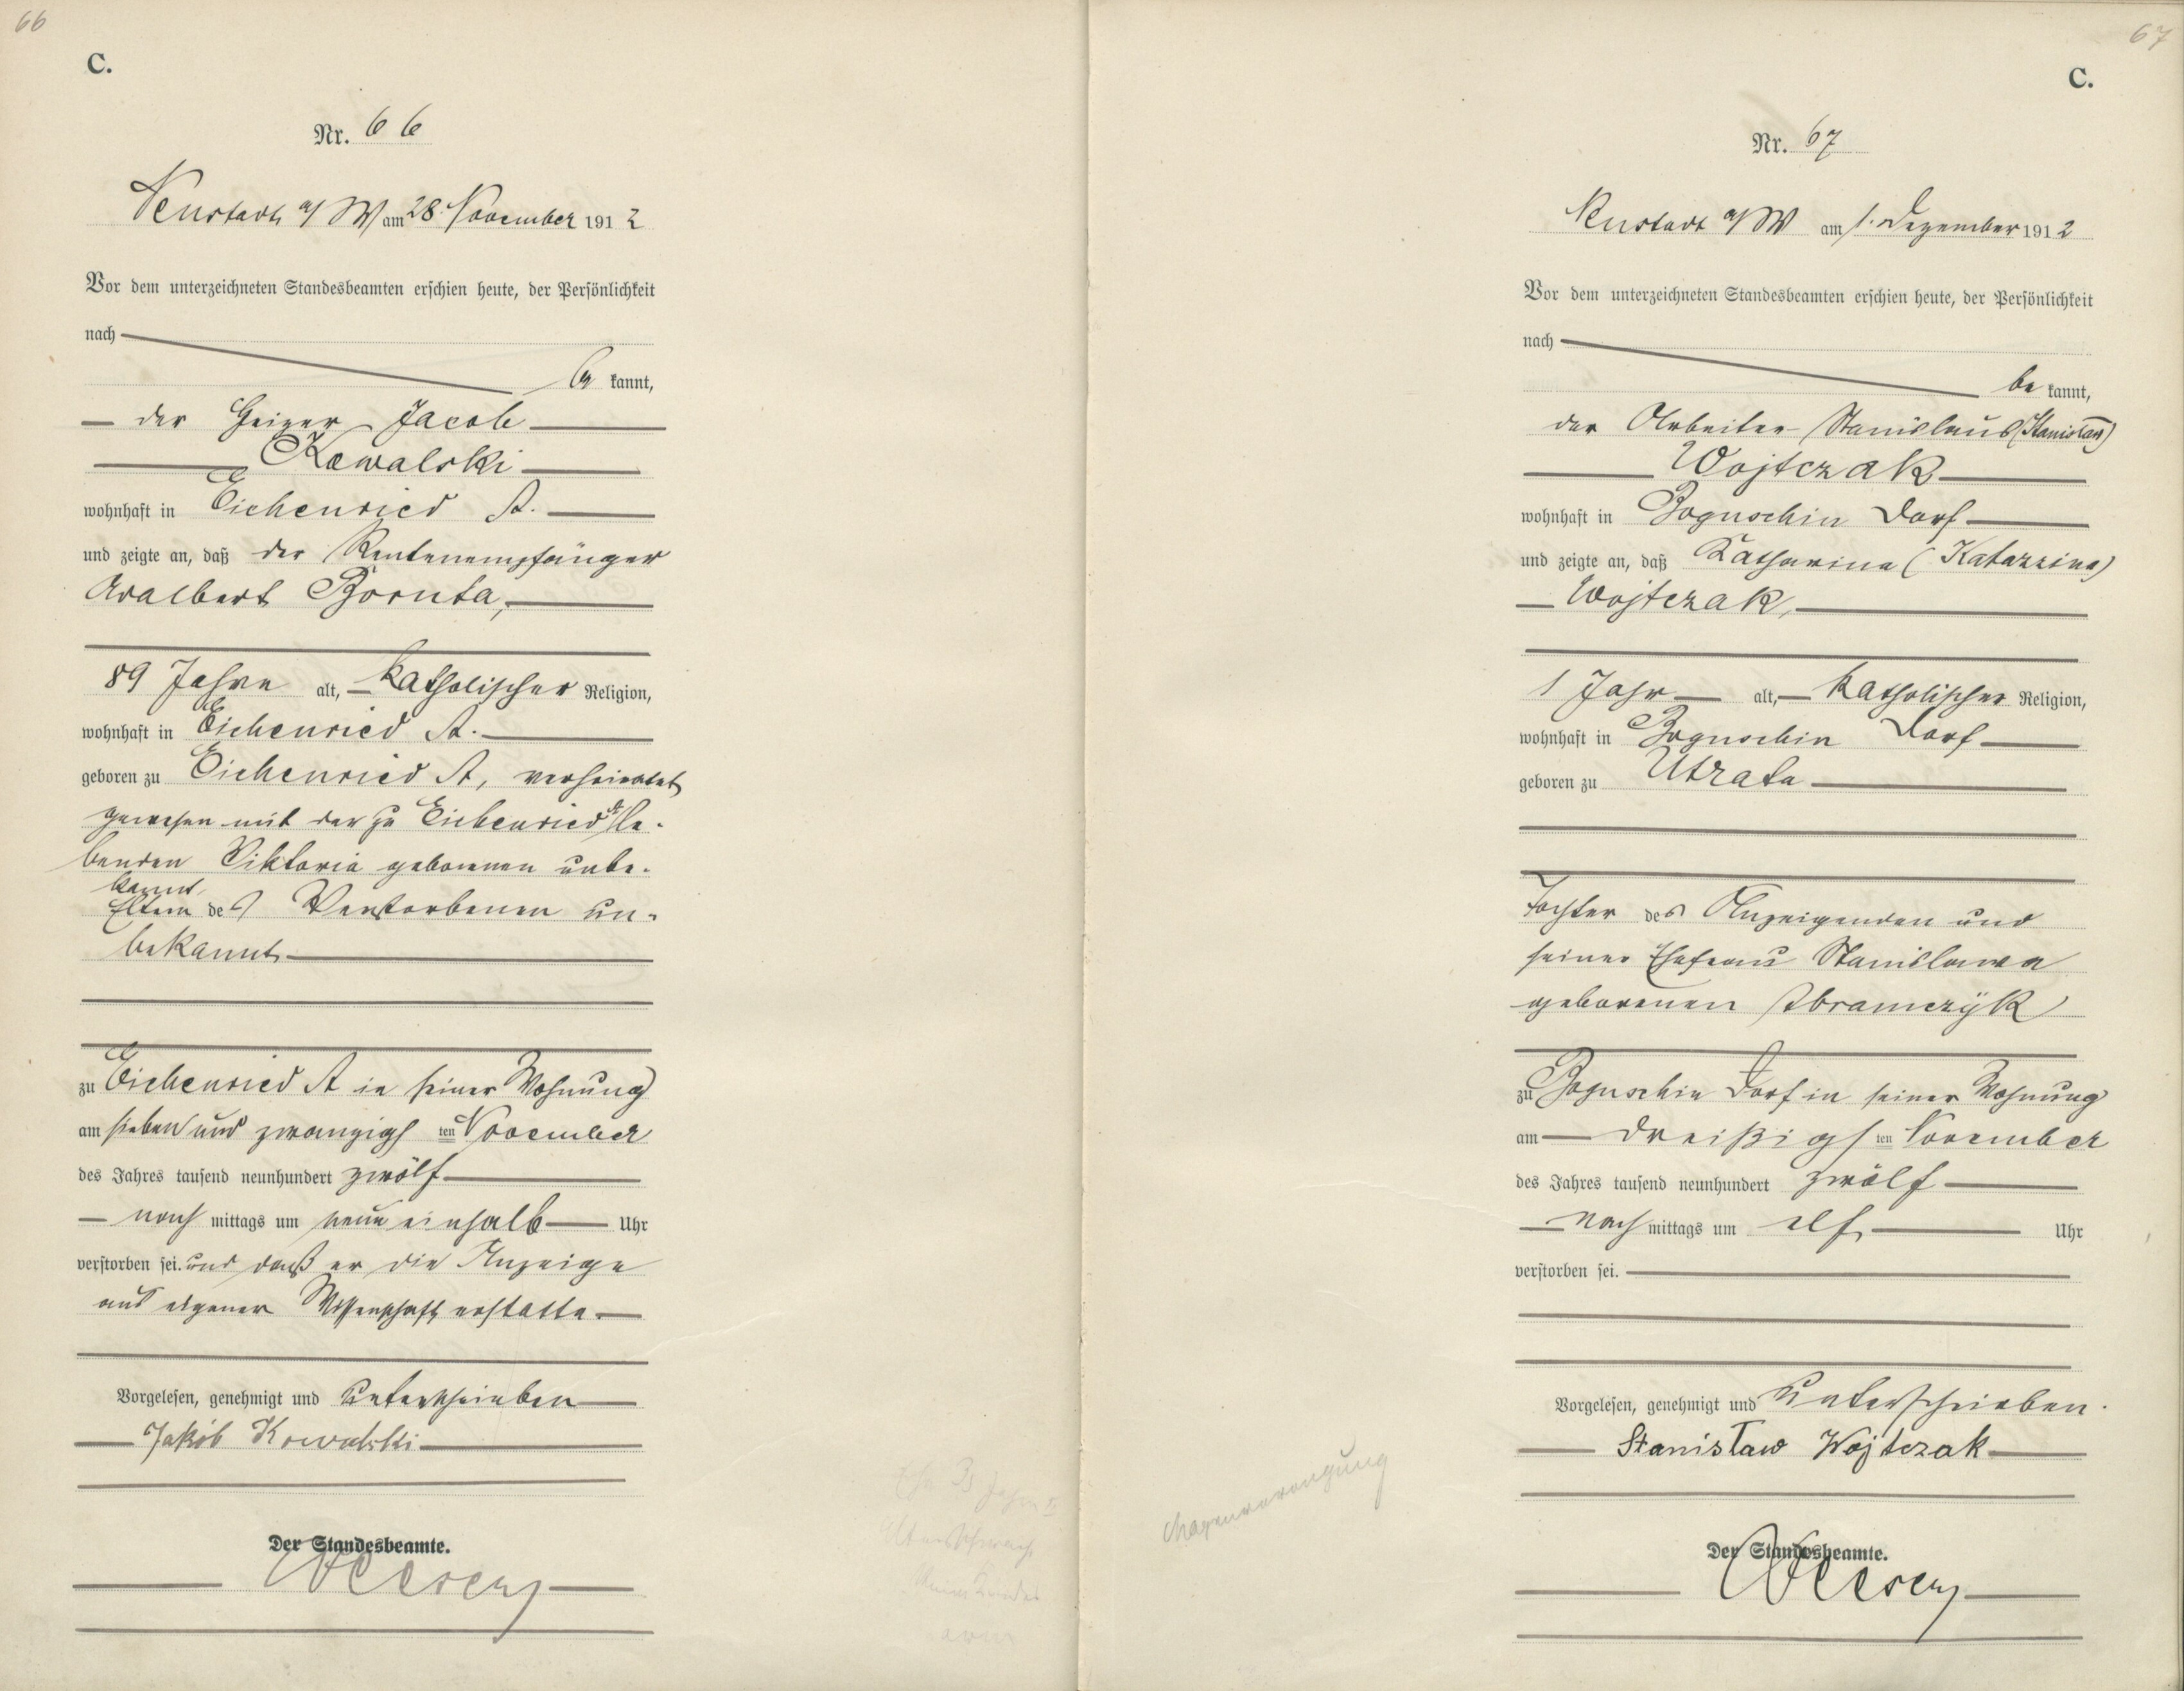 66
C.
Nr. 66
Neustadt a/W am 28. November 1912
Vor dem unterzeichneten Standesbeamten erschien heute, der Persönlichkeit
nach
be kannt,
der Heizer Jacob
Kowalski
wohnhaft in Eichenried A.
und zeigte an, daß der Rentenempfänger
Adalbert Boruta,
89 Jahre alt, katholischer Religion,
wohnhaft in Eichenried A.
geboren zu Eichenried A, verheiratet
gewesen mit der zu Eichenried A le-
benden Viktoria geborenen unbe-
kannt.
Eltern des Verstorbenen un-
bekannt
zu Eichenried A in seiner Wohnung
am sieben und zwanzigsten November
des Jahres tausend neunhundert zwölf
nach mittags um neun einhalb Uhr
verstorben sei. und daß er die Anzeige
aus eigener Wissenschaft erstatte.
Vorgelesen, genehmigt und unterschrieben
Jakób Kowalski
Der Standesbeamte.
Altersschwach
67
C.
Nr. 67
Neustadt a/W am 1. Dezember 1912
Vor dem unterzeichneten Standesbeamten erschien heute, der Persönlichkeit
nach
be kannt,
der Arbeiter Stanislaus (Stanisław)
Wojtczak
wohnhaft in Boguschin Dorf
und zeigte an, daß Katharina (Katarzina)
Wojtczak,
1 Jahr alt, katholischer Religion,
wohnhaft in Boguschin Dorf
geboren zu Utrata
Tochter des Anzeigenden und
seiner Ehefrau Stanislawa
geborenen Abramczyk
zu Boguschin Dorf in seiner Wohnung
am dreißigsten November
des Jahres tausend neunhundert zwölf
nach mittags um elf Uhr
verstorben sei.
Vorgelesen, genehmigt und unterschrieben.
Stanisław Wojtczak
Der Standesbeamte.
Magenverengung